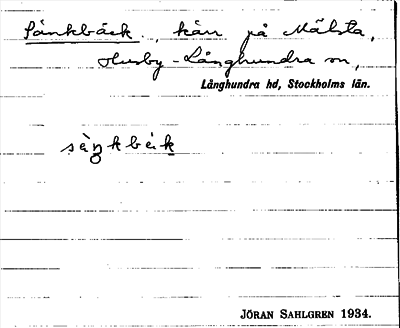 Sänkbäck., kärr på Mälsta,
Husby-Långhundra sn,
Långhundra hd, Stockholms län.
JÖRAN SAHLGREN 1934.